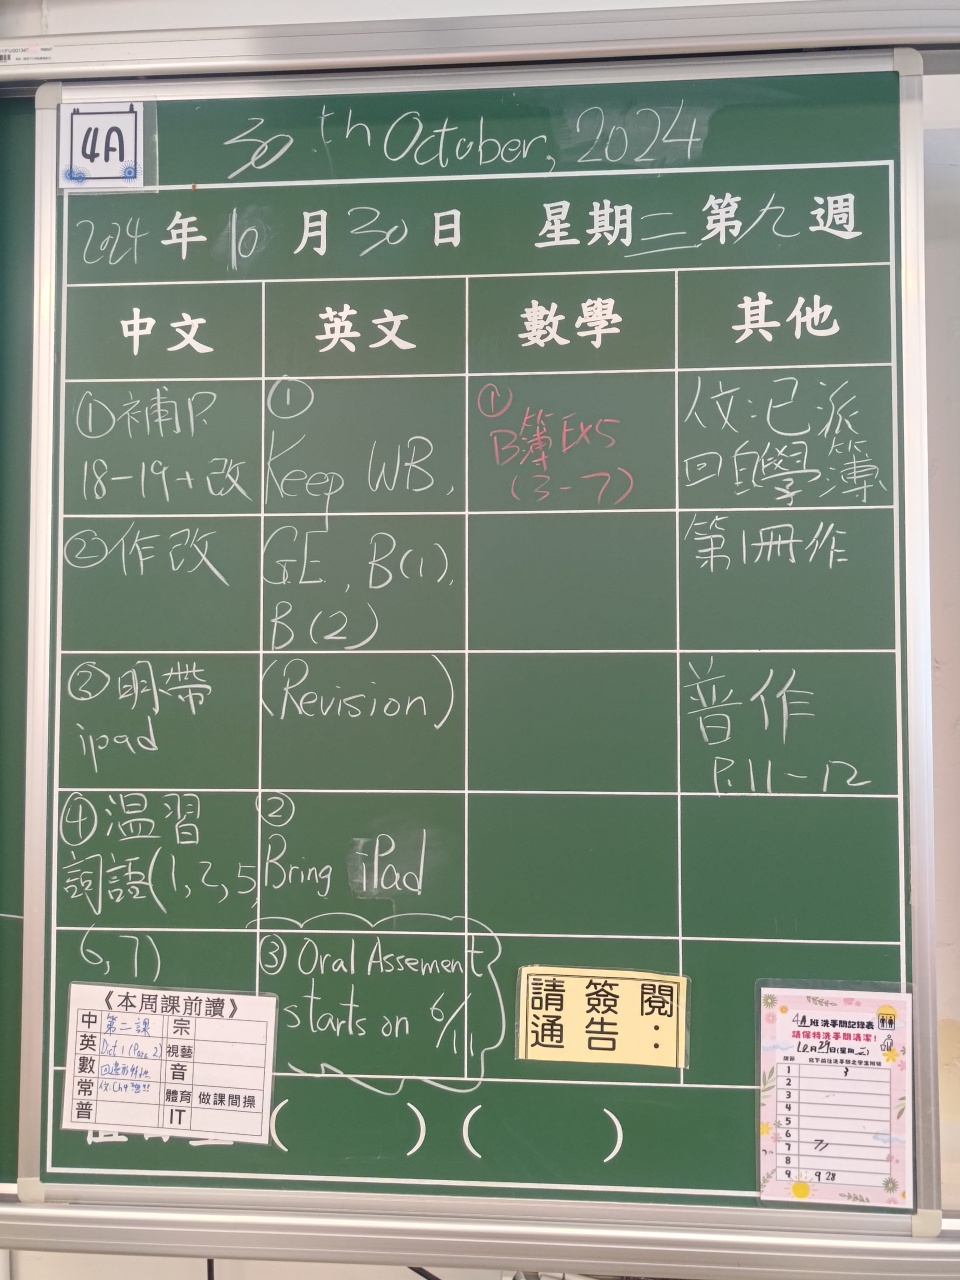 4A
30th October, 2024
2024年10月30日 星期三第九週
中文 英文 數學 其他
①補P.
18-19+改
②作改
③明帶
ipad
④温習
詞語(1,2,5,
6,7)
①
Keep WB,
GE, B(1),
B(2)
(Revision)
②
Bring iPad
③ Oral Assement
starts on 6/11
①
B簿 Ex5
(3-7)
已派
回自學簿
第1冊作
普作
P.11-12
請簽閱
通告:
《本周課前讀》
中 第二課 宗
英 Dict 1 2) 視藝
數 音
常 體育 做課間操
普 IT
( ) ( )
4A班洗手間記錄表
請保特洗手間清潔!
10月29日(星期二)
1
2
3
4
5
6
7
8
9 9 28